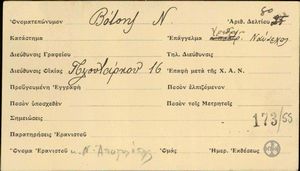 Ὀνοματεπώνυμον Βότσης Ν. Ἀριθ. Δελτίου 80
Κατάστημα Ἐπάγγελμα Ναύαρχος
Διεύθυνσις Γραφείου Τηλ. Διευθύνσις
Διεύθυνσις Οἰκίας Πλουτάρχου 16 Ἐπαφὴ μετὰ τῆς Χ.Α.Ν.
Προηγουμένη Ἐγγραφὴ Ποσὸν ἐλπιζόμενον
Ποσὸν ὑποσχεθὲν Ποσὸν τοῖς Μετρητοῖς
Σημειώσεις 173/55
Παρατηρήσεις Ἐρανιστοῦ
Ὄνομα Ἐρανιστοῦ Ὁμὰς Ἡμερ. Ἐκδόσεως